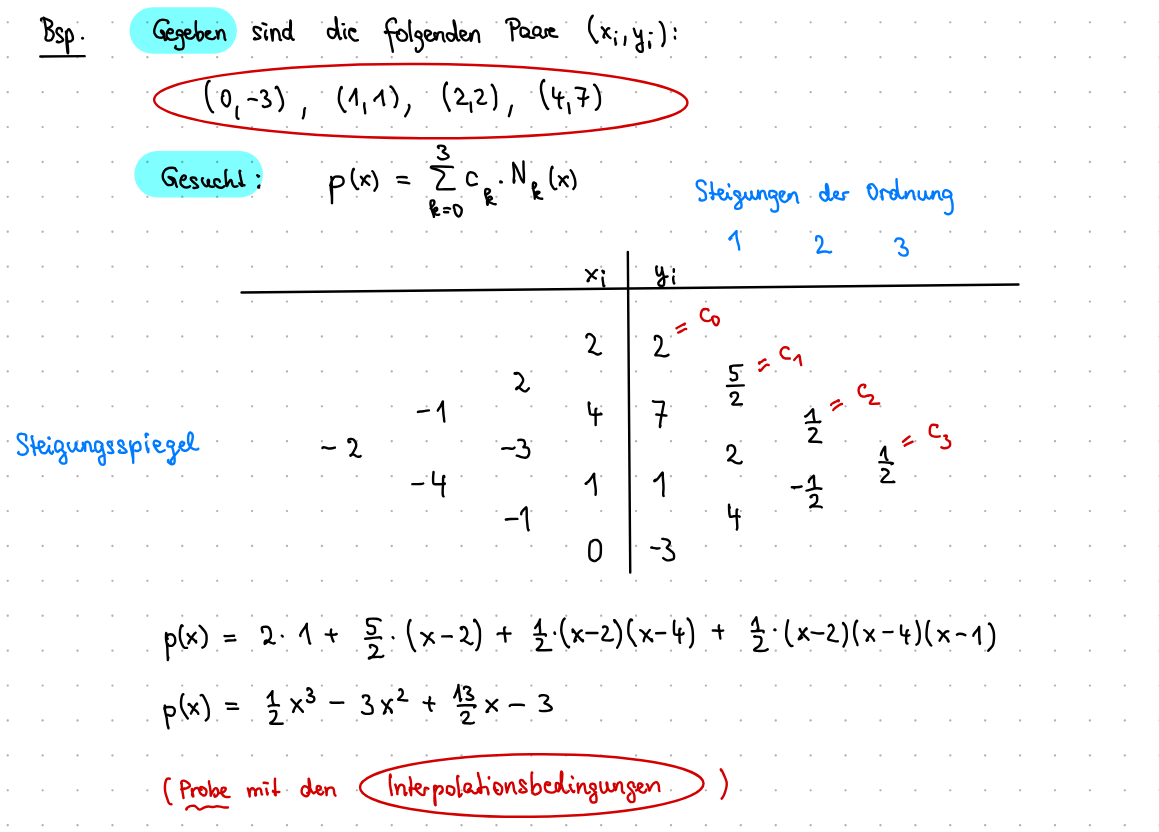 Bsp. Gegeben sind die folgenden Paare (xᵢ, yᵢ):
(0,-3), (1,1), (2,2), (4,7)
Gesucht: p(x) = ∑_{k=0}^{3} c_k · N_k(x)
Steigungen der Ordnung
1 2 3
xᵢ yᵢ
2 2 = c₀
2 5/2 = c₁
-1 4 7 1/2 = c₂
Steigungsspiegel -2 -3 2 1/2 = c₃
-4 1 1 -1/2
-1 4
0 -3
p(x) = 2 · 1 + 5/2 · (x-2) + 1/2 · (x-2)(x-4) + 1/2 · (x-2)(x-4)(x-1)
p(x) = 1/2 x³ - 3x² + 13/2 x - 3
(Probe mit den Interpolationsbedingungen)